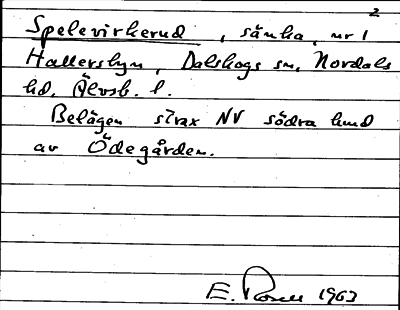 2
Spelevirkerud, sänka, nr 1
Hallersbyn, Dalskogs sn, Nordals
hd, Älvsb. l.
Belägen strax NV södra hund
av Ödegården.
E. 1963